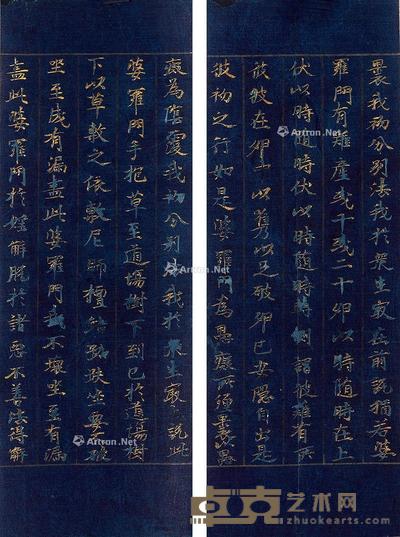 曇我初分別法我於眾生最在前說猶若婆
羅門有雞產或十或二十卵以時隨時在上
伏以時隨時伏以時隨時轉側謂彼雞有所
放彼在卵中以以足破卵已安隱自出是
彼初之行如是婆羅門為愚癡所愚
癡為陰覆我初分別法我於眾生最說此
婆羅門手把草至道場樹下到已於道場樹
下以草敷之依敷尼師檀結跏趺坐要不破
坐至成有漏盡此婆羅門我不壞坐至有漏
盡此婆羅門於婬解脫於諸惡不善法得解
Artron.Net
Artron.Net
Artron.Net
Artron.Net
Artron.Net
卓克艺术网
zhuokearts.com